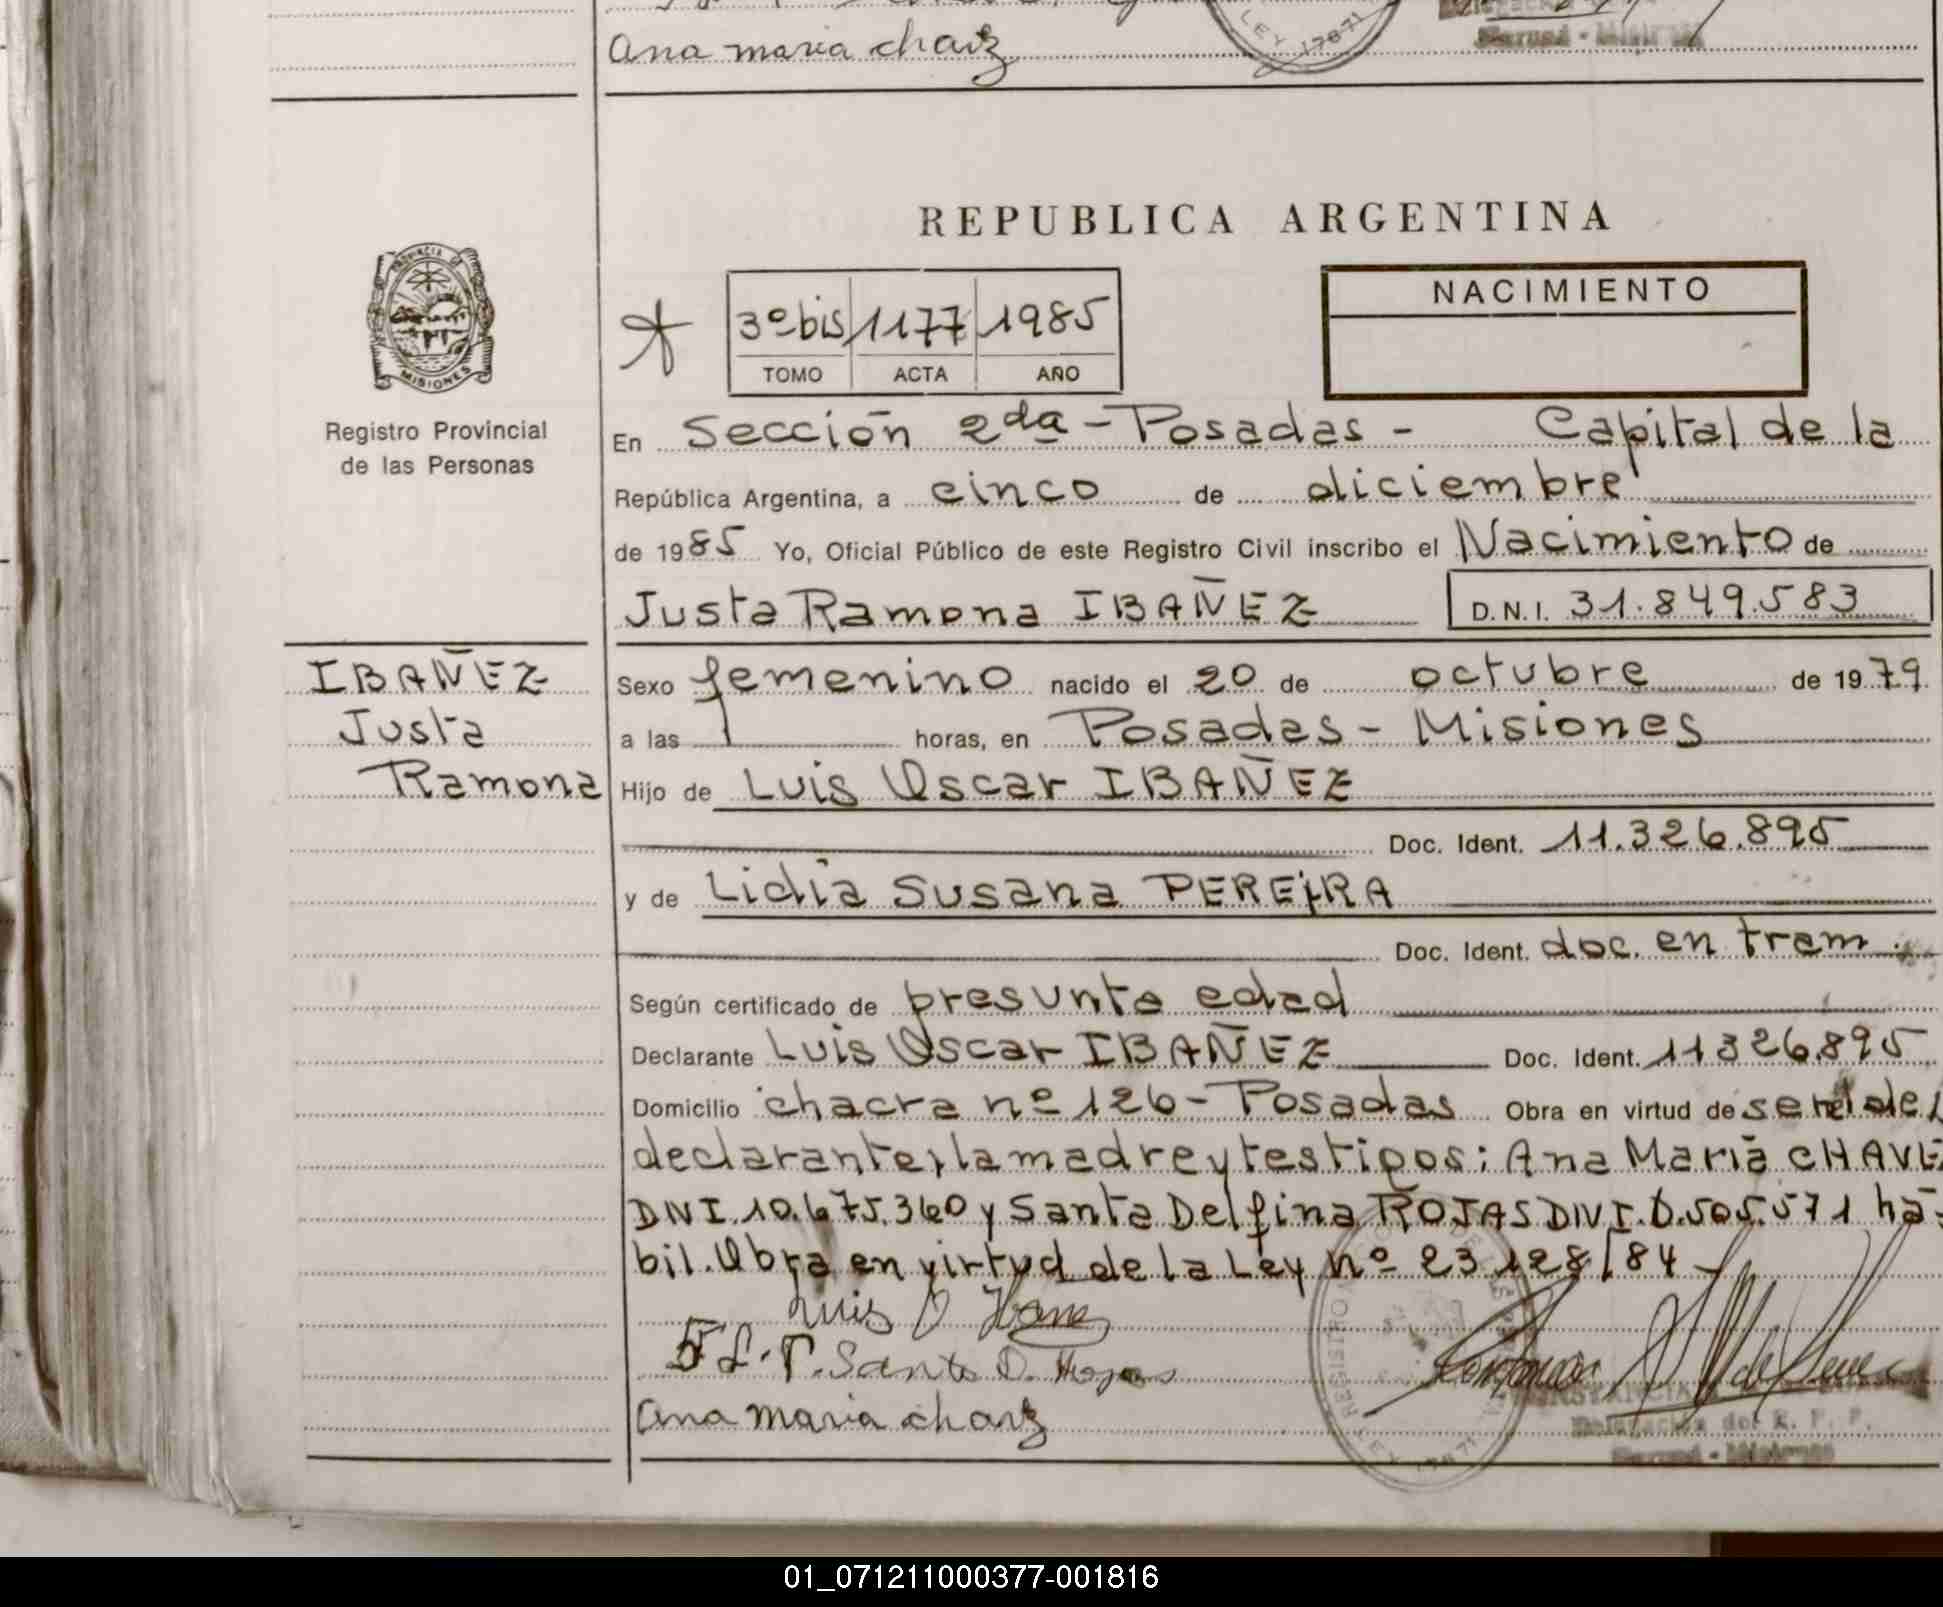 Ana maria chavz
LEY 17671
REPUBLICA ARGENTINA
PROVINCIA DE
MISIONES
Registro Provincial
de las Personas
NACIMIENTO
3º bis 1177 1985
TOMO ACTA AÑO
En Sección 2da - Posadas - Capital de la
República Argentina, a cinco de diciembre
de 1985 Yo, Oficial Público de este Registro Civil inscribo el Nacimiento de
Justa Ramona IBAÑEZ D.N.I. 31.849.583
IBAÑEZ
Justa
Ramona
Sexo femenino nacido el 20 de octubre de 1979
a las horas, en Posadas - Misiones
Hijo de Luis Oscar IBAÑEZ
Doc. Ident. 11.326.895
y de Lidia Susana PEREIRA
Doc. Ident. doc. en tram.
Según certificado de presunta edad
Declarante Luis Oscar IBAÑEZ Doc. Ident. 11326.895
Domicilio chacra nº 126 - Posadas Obra en virtud de ser el de,
declarante, la madre y testigos: Ana Maria CHAVE
DNI. 10.675.360 y Santa Delfina ROJAS DNI. 0.505.571 há-
bil. Obra en virtud de la Ley nº 23.128/84
Luis O Ibanez
L. P. Santa D. Rojas
Ana maria chavz
LEY 17671
Delegación del R. P. P.
01_071211000377-001816